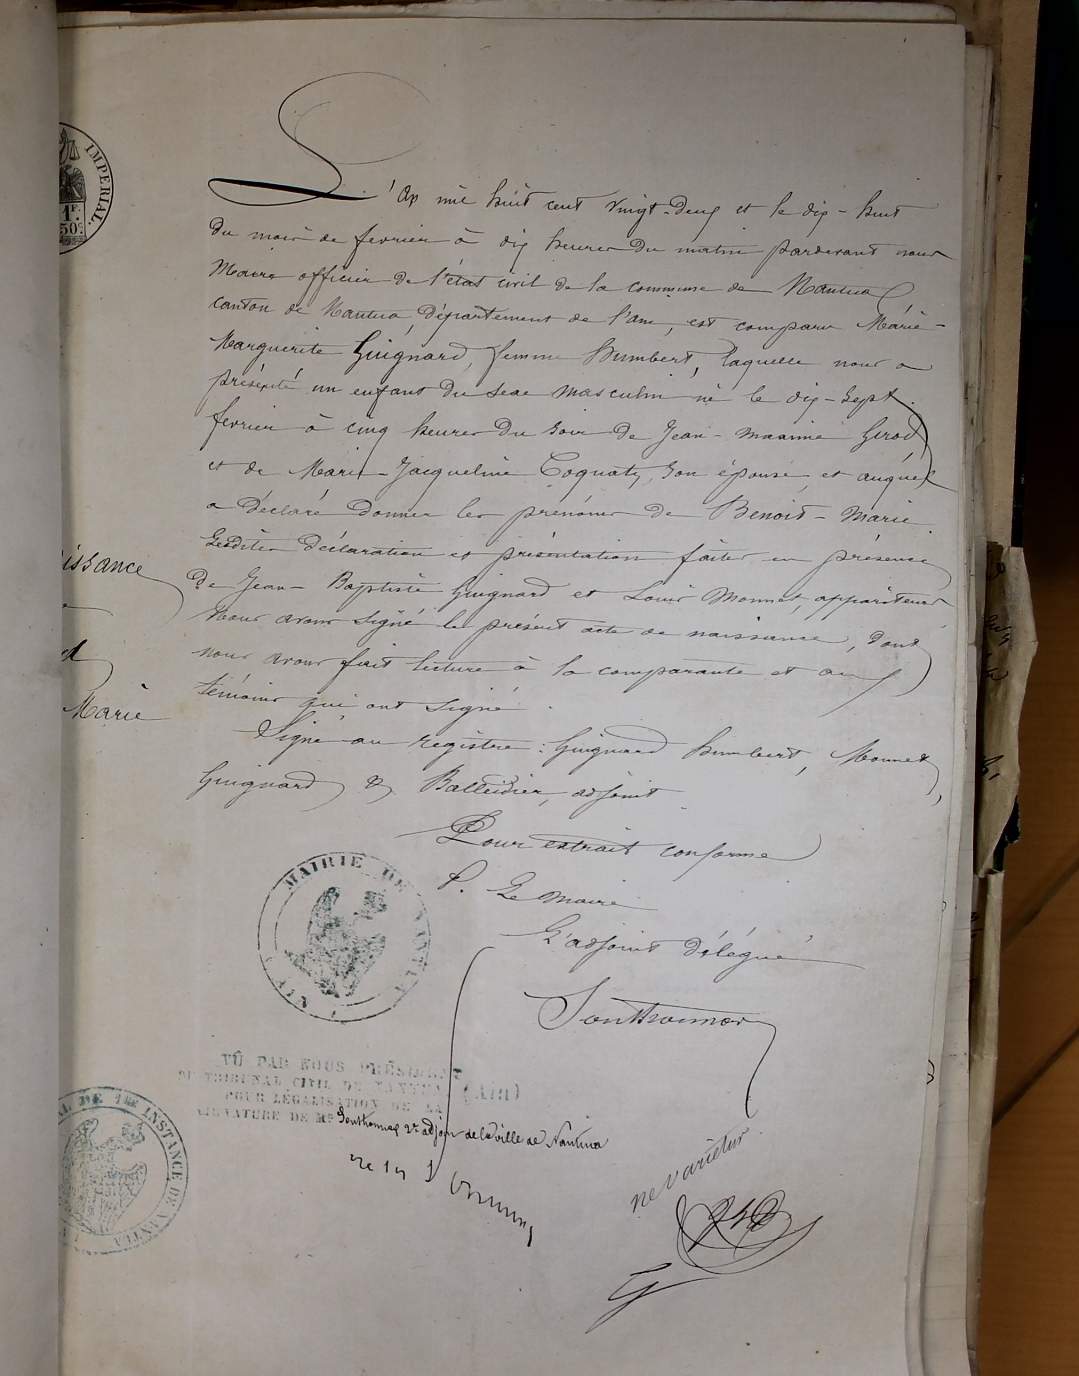 IMPERIAL.
1F.
50c
L'an mil huit cent vingt-deux et le dix-huit
du mois de fevrier à dix heures du matin pardevant nous
Maire officier de l'état civil de la commune de Nantua
canton de Nantua, département de l'ain, est comparu Marie-
Marguerite Guignard, femme Humbert, laquelle nous a
présenté un enfant du sexe masculin né le dix-sept
fevrier à cinq heures du soir de Jean-Maxime Girod,
et de Marie-Jacqueline Coquaty, son épouse, et auquel
a déclaré donner les prénoms de Benoit-Marie.
Lesdites déclaration et présentation faites en présence
issance
de Jean-Baptiste Guignard et Louis Monnet, appariteur
Nous avons signé le présent acte de naissance, dont
nous avons fait lecture à la comparante et aux
Marie
témoins qui ont signé.
Signé au registre : Guignard Humbert, Monnet,
Guignard & Balleidier, adjoint
Pour extrait conforme
P. Le Maire
L'adjoint délégué
Sonthonnax
MAIRIE DE NANTUA (AIN)
VÛ PAR NOUS PRÉSIDENT
DU TRIBUNAL CIVIL DE NANTUA (AIN)
POUR LÉGALISATION DE LA
SIGNATURE DE Mr Sonthonnax 2e adjoint de la ville de Nantua
AL DE 1ère INSTANCE DE NANTUA
ne varietur